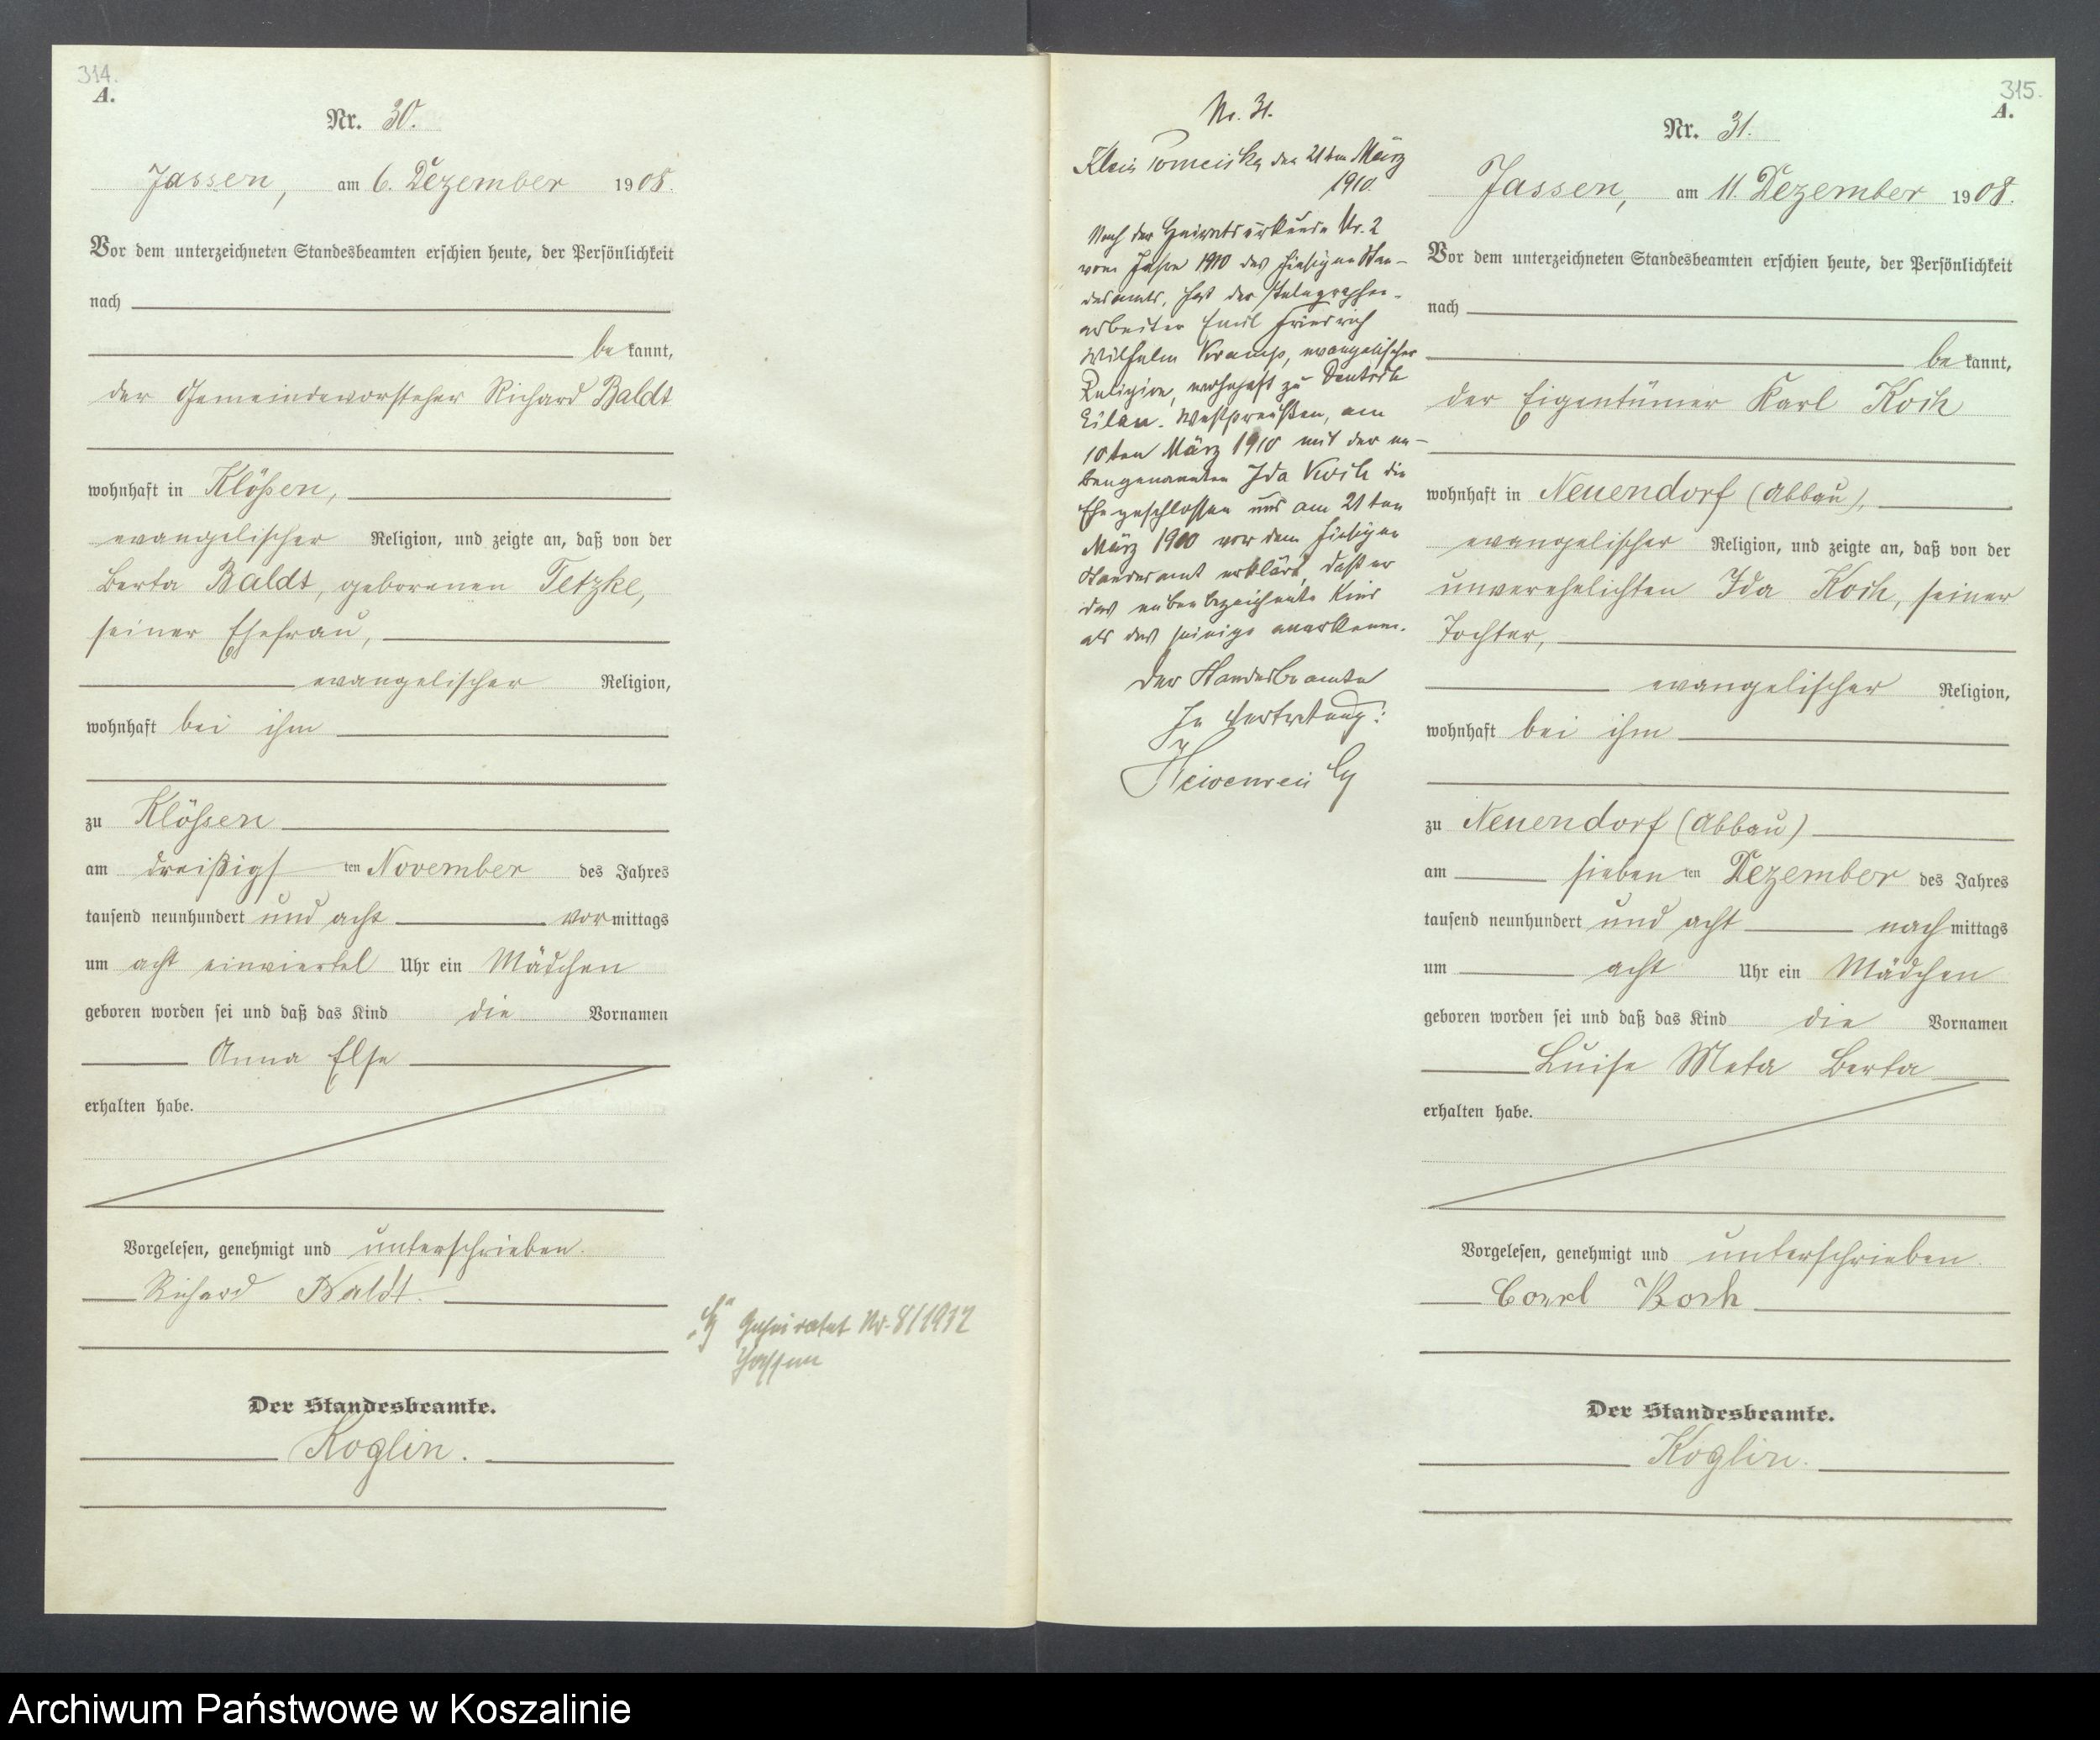 314.
A.
Nr. 30.
Jassen, am 6. Dezember 1908.
Vor dem unterzeichneten Standesbeamten erschien heute, der Persönlichkeit
nach
be kannt,
der Gemeindevorsteher Richard Baldt
wohnhaft in Klößen,
evangelischer Religion, und zeigte an, daß von der
Berta Baldt, geborenen Tetzke,
seiner Ehefrau,
evangelischer Religion,
wohnhaft bei ihm
zu Klößen
am dreißigs ten November des Jahres
tausend neunhundert und acht vor mittags
um acht einviertel Uhr ein Mädchen
geboren worden sei und daß das Kind die Vornamen
Anna Else
erhalten habe.
Vorgelesen, genehmigt und unterschrieben.
Richard Baldt.
Geheiratet Nr. 8/1932
Jassen
Der Standesbeamte.
Koglin.
315.
A.
Nr. 31.
Klein den 21ten März
1910.
Nach der Heiratsurkunde Nr. 2
vom Jahre 1910 des hiesigen Stan-
desamts, hat der Telegraphen-
arbeiter Emil Friedrich
Wilhelm Kramp, evangelischer
Religion, wohnhaft zu Deutsch
Eilau. Westpreußen, am
10ten März 1910 mit der ne-
bengenannten Ida Koch die
Ehe geschlossen und am 21ten
März 1910 vor dem hiesigen
Standesamt erklärt, daß er
das nebenbezeichnete Kind
als das seinige anerkenne.
Der Standesbeamte
In Vertretung:
Nr. 31.
Jassen, am 11. Dezember 1908.
Vor dem unterzeichneten Standesbeamten erschien heute, der Persönlichkeit
nach
be kannt,
der Eigentümer Karl Koch
wohnhaft in Neuendorf (Abbau),
evangelischer Religion, und zeigte an, daß von der
unverehelichten Ida Koch, seiner
Tochter,
evangelischer Religion,
wohnhaft bei ihm
zu Neuendorf (Abbau)
am sieben ten Dezember des Jahres
tausend neunhundert und acht nach mittags
um acht Uhr ein Mädchen
geboren worden sei und daß das Kind die Vornamen
Luise Meta Berta
erhalten habe.
Vorgelesen, genehmigt und unterschrieben.
Carl Koch
Der Standesbeamte.
Koglin.
Archiwum Państwowe w Koszalinie